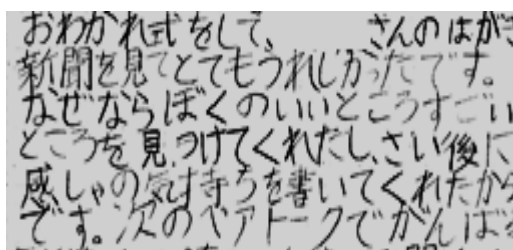 おわかれ式をして、 さんのはがき
新聞を見てとてもうれしかったです。
なぜならぼくのいいところすごい
ところを見つけてくれたし、さい後に
感しゃの気持ちを書いてくれたから
です。次のペアトークでがんばる